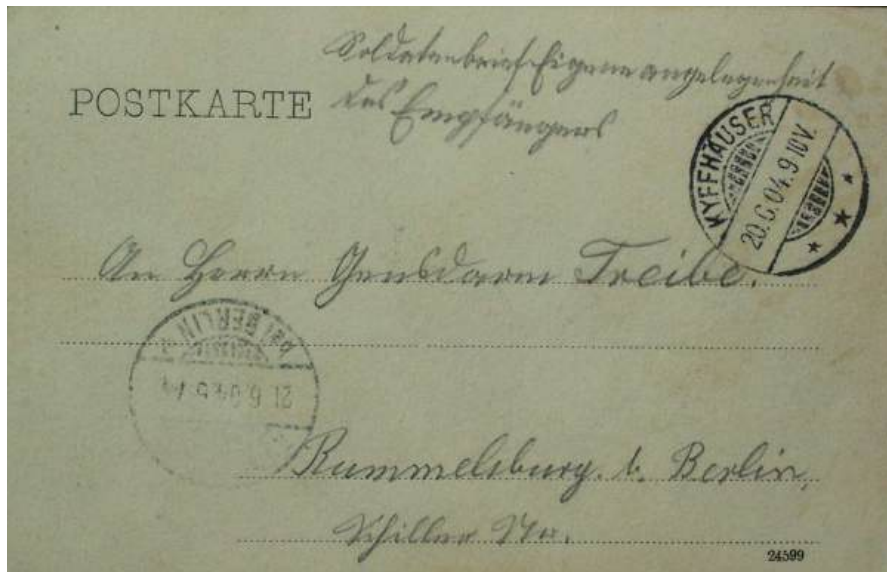 Soldatenbrief Eigene angelegenheit
POSTKARTE des Empfängers
KYFFHÄUSER
20.6.04.9 10V.
An Herrn Gensdarm Treibe.
bei BERLIN
21 6 04
Rummelsburg. b. Berlin,
Schiller
24599